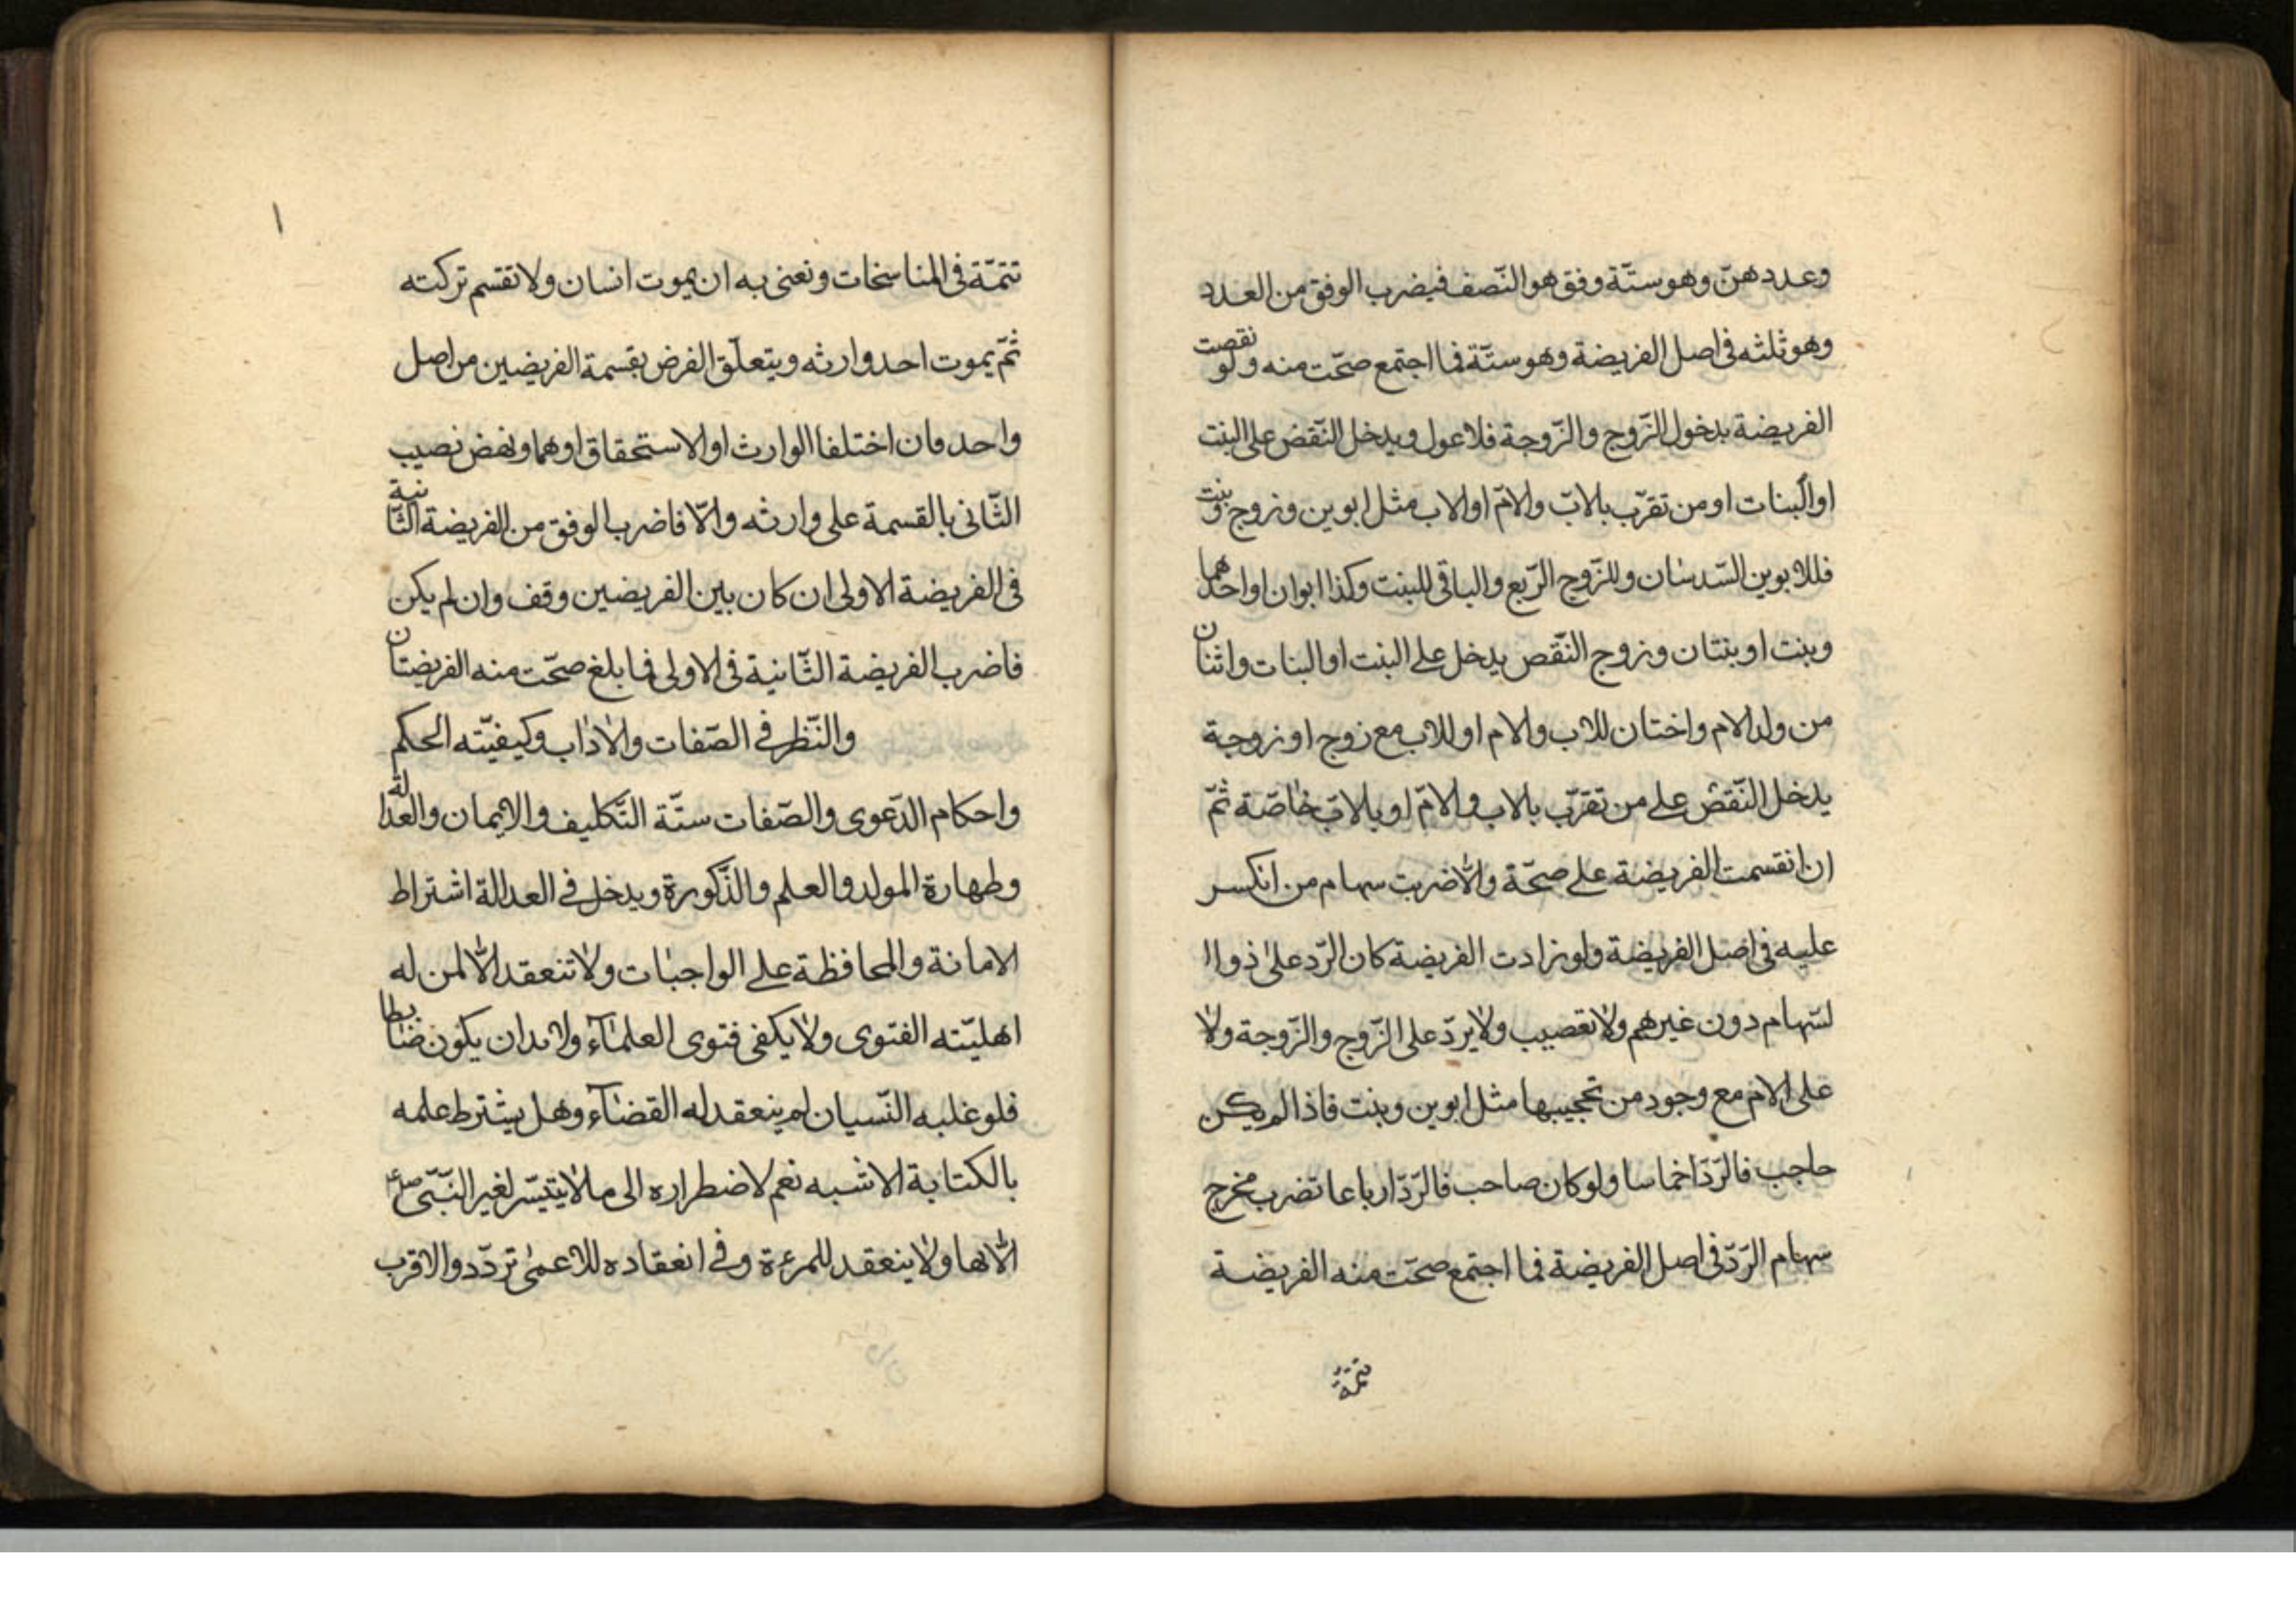 وعددهنّ وهو ستّة وفق هو النّصف فيضرب الوفق من العدد
وهو ثلثه فى اصل الفريضة وهو ستّة فما اجتمع صحّت منه ولو نقصت
الفريضة بدخول الزّوج والزّوجة فلا عول ويدخل النّقض على البنت
او البنات او من تقرّب بالابّ والامّ او الاب مثل ابوين وزوج وبنت
فللابوين السّدسان وللزّوج الرّبع والباقى للبنت وكذا ابوان او احدهما
وبنت او بنتان وزوج النّقص يدخل على البنت او البنات واثنان
من ولد الام واختان للاب والام او للاب مع زوج او زوجة
يدخل النّقض على من تقرّب بالاب والامّ او بالابّ خاصّة ثمّ
ان انقسمت الفريضة على صحّة والّا ضربت سهام من انكسر
عليه فى اصل الفريضة ولو زادت الفريضة كان الرّد على ذوا ا
لسّهام دون غيرهم ولا تعصيب ولا يردّ على الزّوج والزّوجة ولا
على الام مع وجود من تحجيبها مثل ابوين وبنت فاذا لم يكن
حاجب فالرّدّ اخماسا ولو كان صاحب فالرّدّ ارباعا تضرب مخرج
سهام الرّدّ فى اصل الفريضة فما اجتمع صحّت منه الفريضة
تتمّة
١
تتمّة فى المناسخات ونعنى به ان يموت انسان ولا تقسم تركته
ثمّ يموت احد وارثه ويتعلّق الفرض بقسمة الفريضين من اصل
واحد فان اختلفا الوارث او الاستحقاق او هما ونهض نصيب
الثّانى بالقسمة على وارثه والّا فاضرب الوفق من الفريضة الثّانية
فى الفريضة الاولى ان كان بين الفريضين وقف وان لم يكن
فاضرب الفريضة الثّانية فى الاولى فما بلغ صحّت منه الفريضتان
والنّظر فى الصّفات والاداب وكيفيّته الحكم
واحكام الدّعوى والصّفات ستّة التّكليف والايمان والعدالة
وطهارة المولد والعلم والذّكورة ويدخل فى العدالة اشتراط
الامانة والمحافظة على الواجبات ولا تنعقد الّا لمن له
اهليّته الفتوى ولا يكفى فتوى العلمآء ولا بدان يكون ضابطا
فلو غلبه النّسيان لم ينعقد له القضآء وهل يشترط علمه
بالكتابة الاشبه نعم لاضطراره الى ما لا يتيسّر لغير النّبّى صلع
الّا بها ولا ينعقد للمرءة وفى انعقاده للاعمى تردّد والاقرب